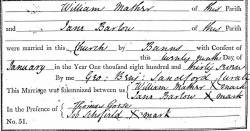 William Mather of this Parish
and
Jane Barlow of this Parish
were married in this Church by Banns with Consent of
this twenty ninth Day of
January in the Year One thousand eight hundred and thirty Seven
By me Geo: Benj: Sandford Curate
This Marriage was solemnized between us William Mather X mark
Jane Barlow X mark
In the Presence of Thomas
Job Schofield X mark
No. 51.